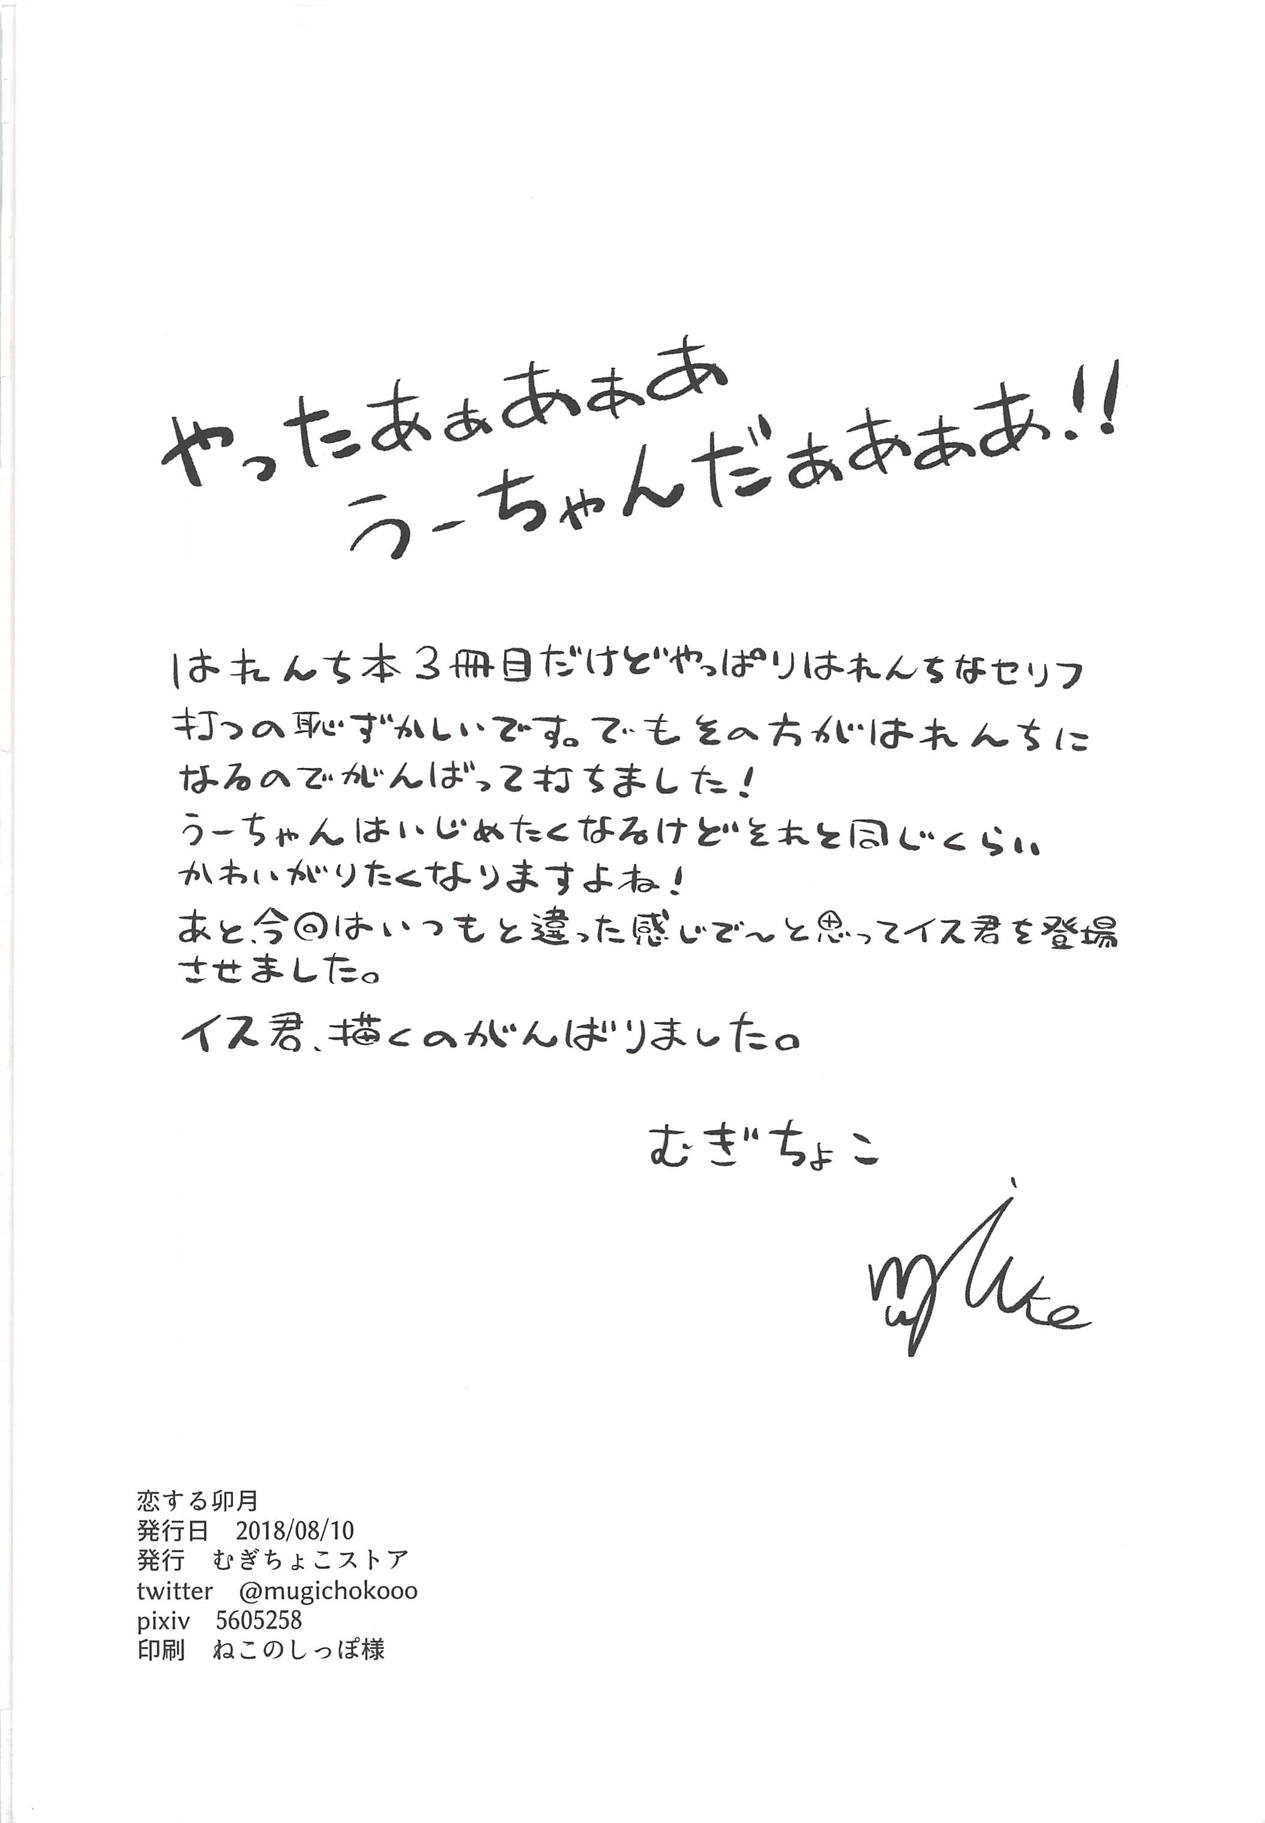 やったあぁあぁあ
うーちゃんだぁあぁあ!!
はれんち本3冊目だけどやっぱりはれんちなセリフ
打つの恥ずかしいです。でもその方がはれんちに
なるのでがんばって打ちました!
うーちゃんはいじめたくなるけどそれと同じくらい
かわいがりたくなりますよね!
あと、今回はいつもと違った感じで～と思ってイス君を登場
させました。
イス君、描くのがんばりました。
むぎちょこ
恋する卯月
発行日　2018/08/10
発行　むぎちょこストア
twitter　@mugichokooo
pixiv　5605258
印刷　ねこのしっぽ様